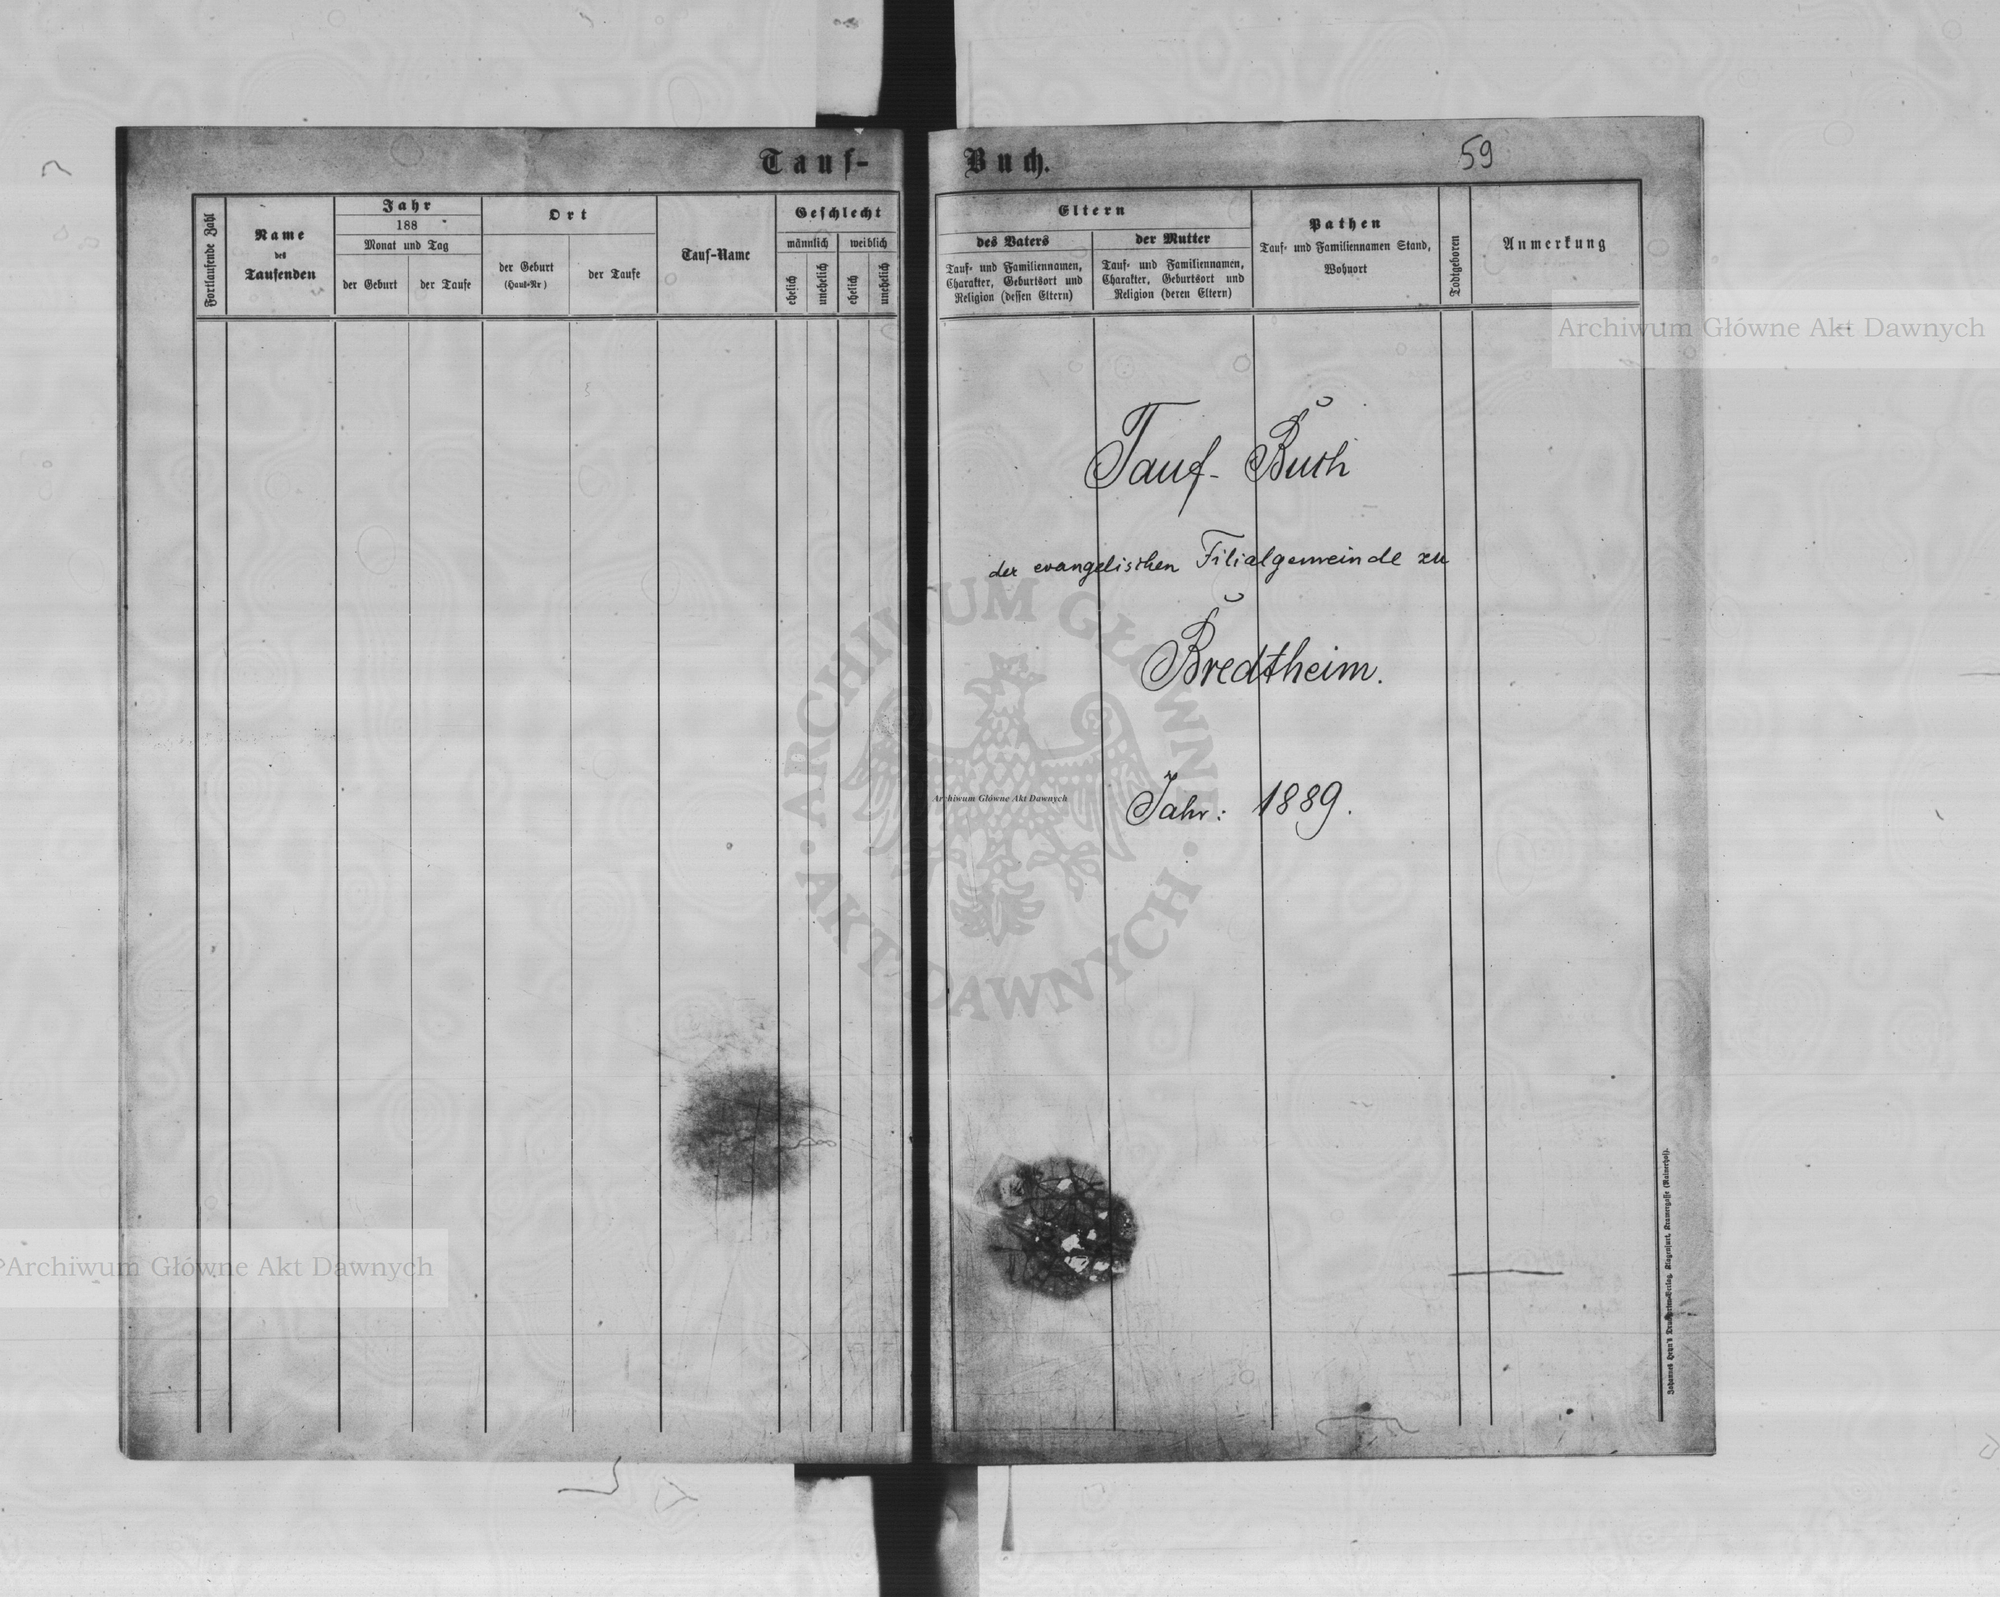 Tauf-Buch.
59
Fortlaufende Zahl
Name
des
Taufenden
Jahr
188
Monat und Tag
der Geburt
der Taufe
Ort
der Geburt
(Haus-Nr)
der Taufe
Tauf-Name
Geschlecht
männlich
weiblich
ehelich
unehelich
ehelich
unehelich
Eltern
des Vaters
Tauf- und Familiennamen,
Charakter, Geburtsort und
Religion (dessen Eltern)
der Mutter
Tauf- und Familiennamen,
Charakter, Geburtsort und
Religion (deren Eltern)
Pathen
Tauf- und Familiennamen Stand,
Wohnort
Todtgeboren
Anmerkung
Archiwum Główne Akt Dawnych
Tauf-Buch
der evangelischen Filialgemeinde zu
Bredtheim.
Jahr: 1889.
ARCHIWUM GŁÓWNE
AKT DAWNYCH
Archiwum Główne Akt Dawnych
Archiwum Główne Akt Dawnych
Johannes Heyn's Drucksorten-Verlag, Klagenfurt, Kramergasse (Rainerhof).